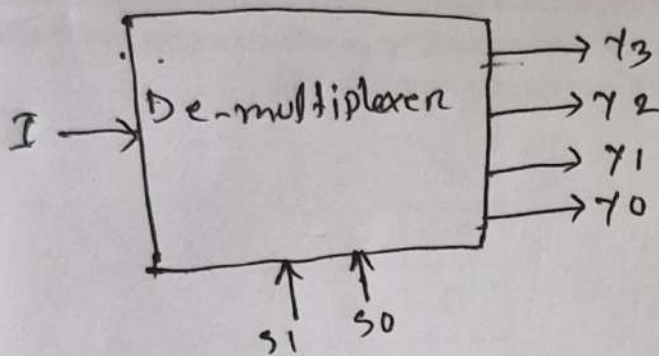 Y3
De-multiplexer
I
Y2
Y1
Y0
S1
S0